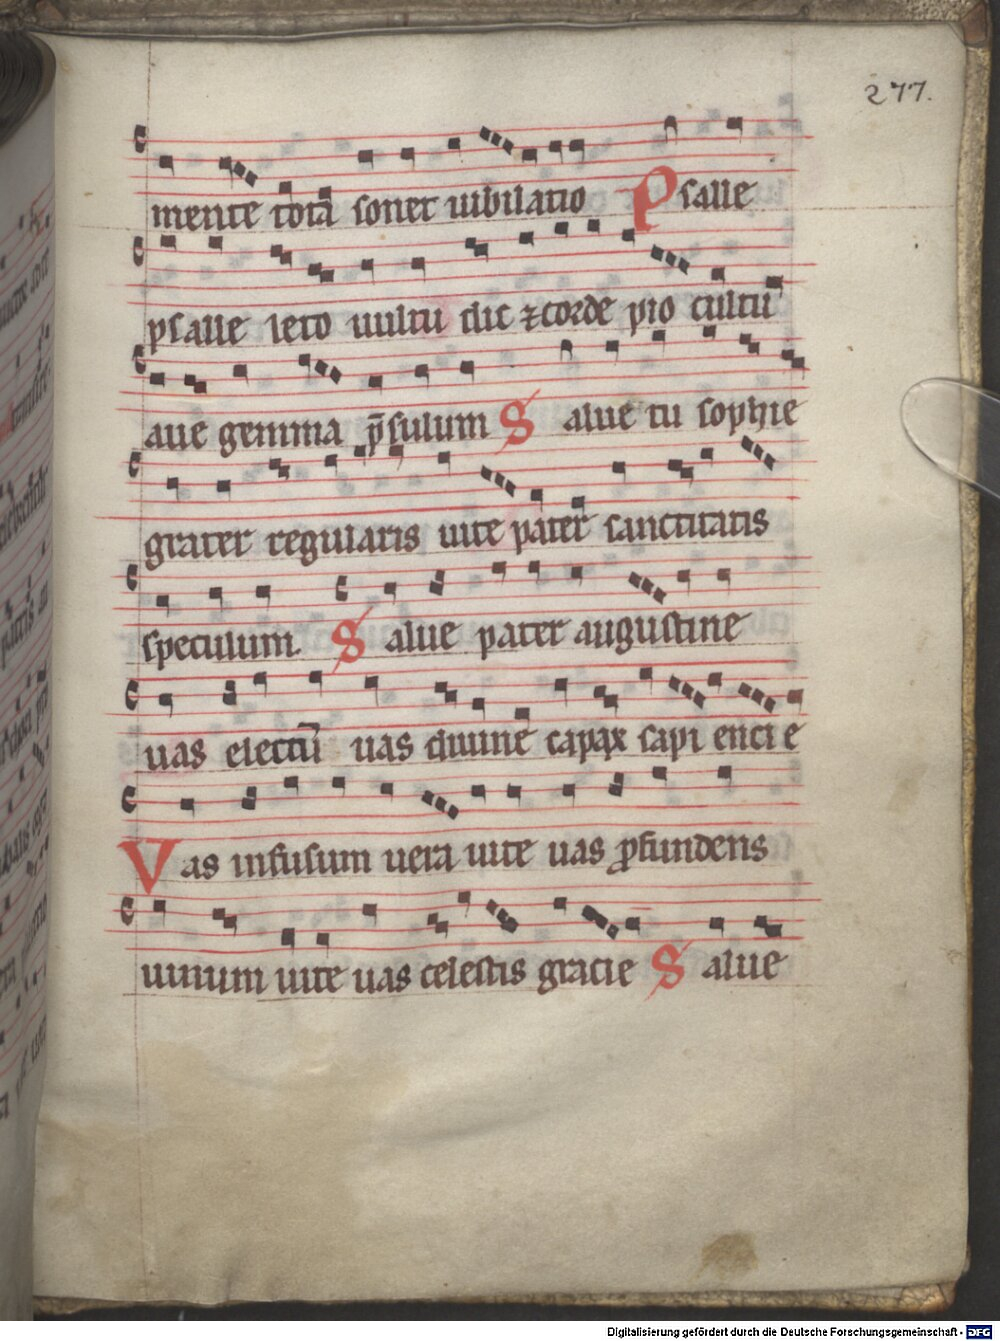 277.
mente totā sonet iubilatio Psalle
psalle leto uultu dic ⁊ corde pro cultu
aue gemma p̄sulum Salue tu sophie
grater regularis uite pater sanctitatis
speculum. Salue pater augustine
uas electū uas diuine capax sapi enci e
Vas infusum uera uite uas ꝓfundens
uinum uite uas celestis gracie Salue
Digitalisierung gefördert durch die Deutsche Forschungsgemeinschaft - DFG